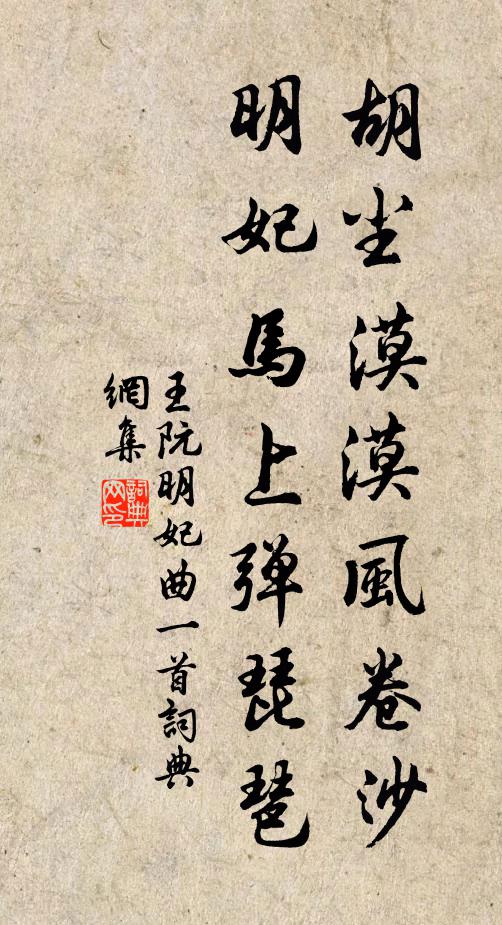 胡尘漠漠風卷沙
明妃馬上弹琵琶
王阮明妃曲一首詞典
網集
詞典
网印